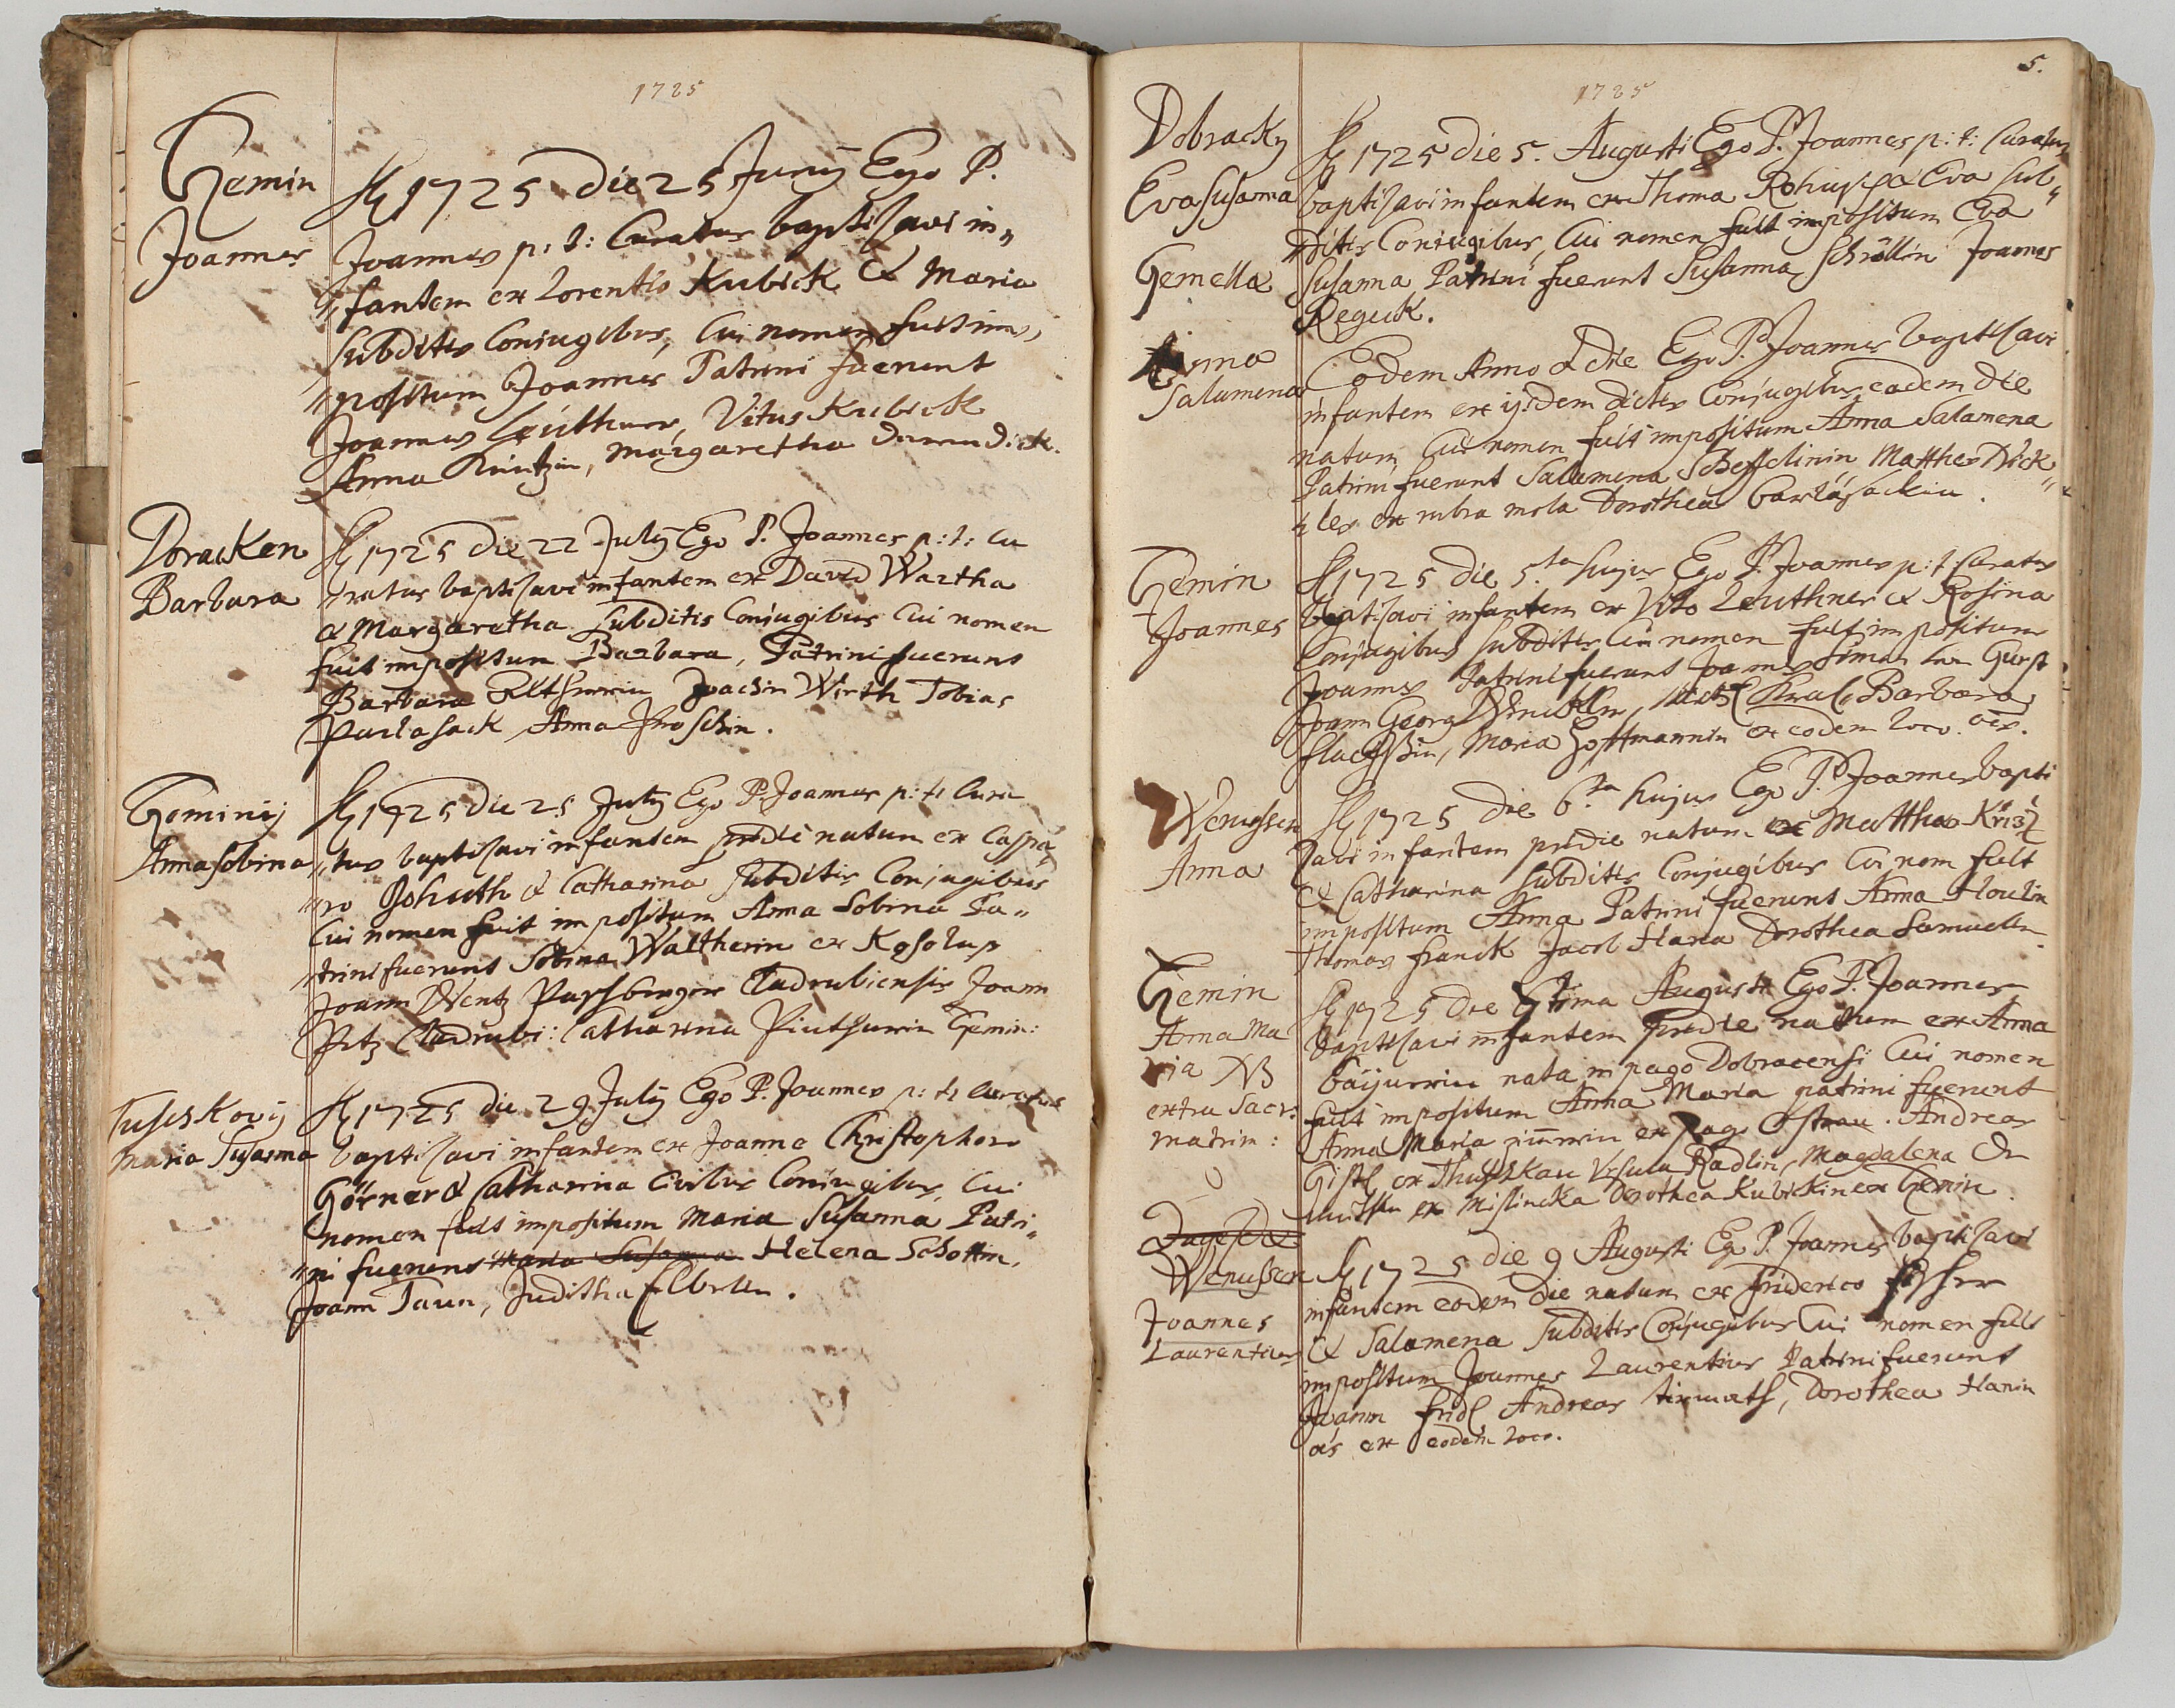 1725
Gemin
Joannes
A 1725 die 25 Junij Ego P.
Joannes p: t: Curatus baptisavi in„
„fantem ex Lorentio Kubick & Maria
Subditis Conjugibus, Cui nomen fuit im„
„positum Joannes Patrini fuerunt
Joannes Leuthner, Vitus Kubick
Anna, Margaretha
Doracken
Barbara
A 1725 die 22 July Ego P. Joannes p: t: Cu
„ratus baptisavi infantem ex David Wartha
& Margaretha Subditis Conjugibus Cui nomen
fuit impositum Barbara, Patrini fuerunt
Barbara Joachim Wirth Tobias
Parlasack, Anna
Geminij
Anna Sobina
A 1725 die 25 July Ego P. Joannes p: t: Cura
„tus baptisavi infantem pridie natum ex Caspa„
„ro & Catharina Subditis Conjugibus
Cui nomen fuit impositum Anna Sobina Pa„
„trini fuerunt Sobina Waltherin ex
Joann Wentz Cladrubiensis Joann
Cladrubi: Catharina Gemin:
Maria Susanna
A 1725 die 29 July Ego P. Joannes p: t: Curatus
baptisavi infantem ex Joanne Christophoro
Görner & Catharina Civibus Conjugibus, Cui
nomen fuit impositum Maria Susanna Patri„
„ni fuerunt Maria Susanna Helena Schottin,
Joann Taun, Juditha Elbelin.
5.
1725
Dobracky
Eva Susanna
Gemella
A 1725 die 5. Augusti Ego P. Joannes p: t: Curatus
baptisavi infantem ex Thoma & Eva Sub„
„ditis Conjugibus, Cui nomen fuit impositum Eva
Susanna Patrini fuerunt Susanna Schröllin Joannes
Regeck.
Anna
Salamena
Eodem Anno & die Ego P. Joannes baptisavi
infantem ex ijsdem dictis Conjugibus eadem die
natum Cui nomen fuit impositum Anna Salamena
Patrini fuerunt Salamena Matthes Dick„
„les ex rubra mola Dorothea
Gemin
Joannes
A 1725 die 5.ta hujus Ego P. Joannes p: t: Curatus
baptisavi infantem ex Vito Leuthner & Rosina
Conjugibus Subditis Cui nomen fuit impositum
Joannes Patrini fuerunt Joannes Simon
Joann Georg Barbara
Maria Hoffmannin ex eodem loco
Wenussen
Anna
A 1725 die 6.ta hujus Ego P. Joannes bapti
savi infantem pridie natum ex Matthæo
& Catharina Subditis Conjugibus Cui nom fuit
impositum Anna Patrini fuerunt Anna
Thomas Franck Jacob Hana Dorothea Samuelin
Gemin
Anna Ma
ria NB
extra Sacr:
matrim:
A 1725 die 7tima Augusti Ego P. Joannes
baptisavi infantem pridie natum ex Anna
nata in pago Dobracensi Cui nomen
fuit impositum Anna Maria patrini fuerunt
Anna Maria ex Pago Ostrau. Andreas
ex Ursula Radlin, Magdalena
ex Mislincka Dorothea Kubickin ex Gemin.
Wenussen
Joannes
Laurentius
A 1725 die 9 Augusti Ego P. Joannes baptisavi
infantem eodem die natum ex Friderico
& Salamena Subditis Conjugibus Cui nomen fuit
impositum Joannes Laurentius Patrini fuerunt
Joann Fridl Andreas, Dorothea Hanin
ex eodem loco.